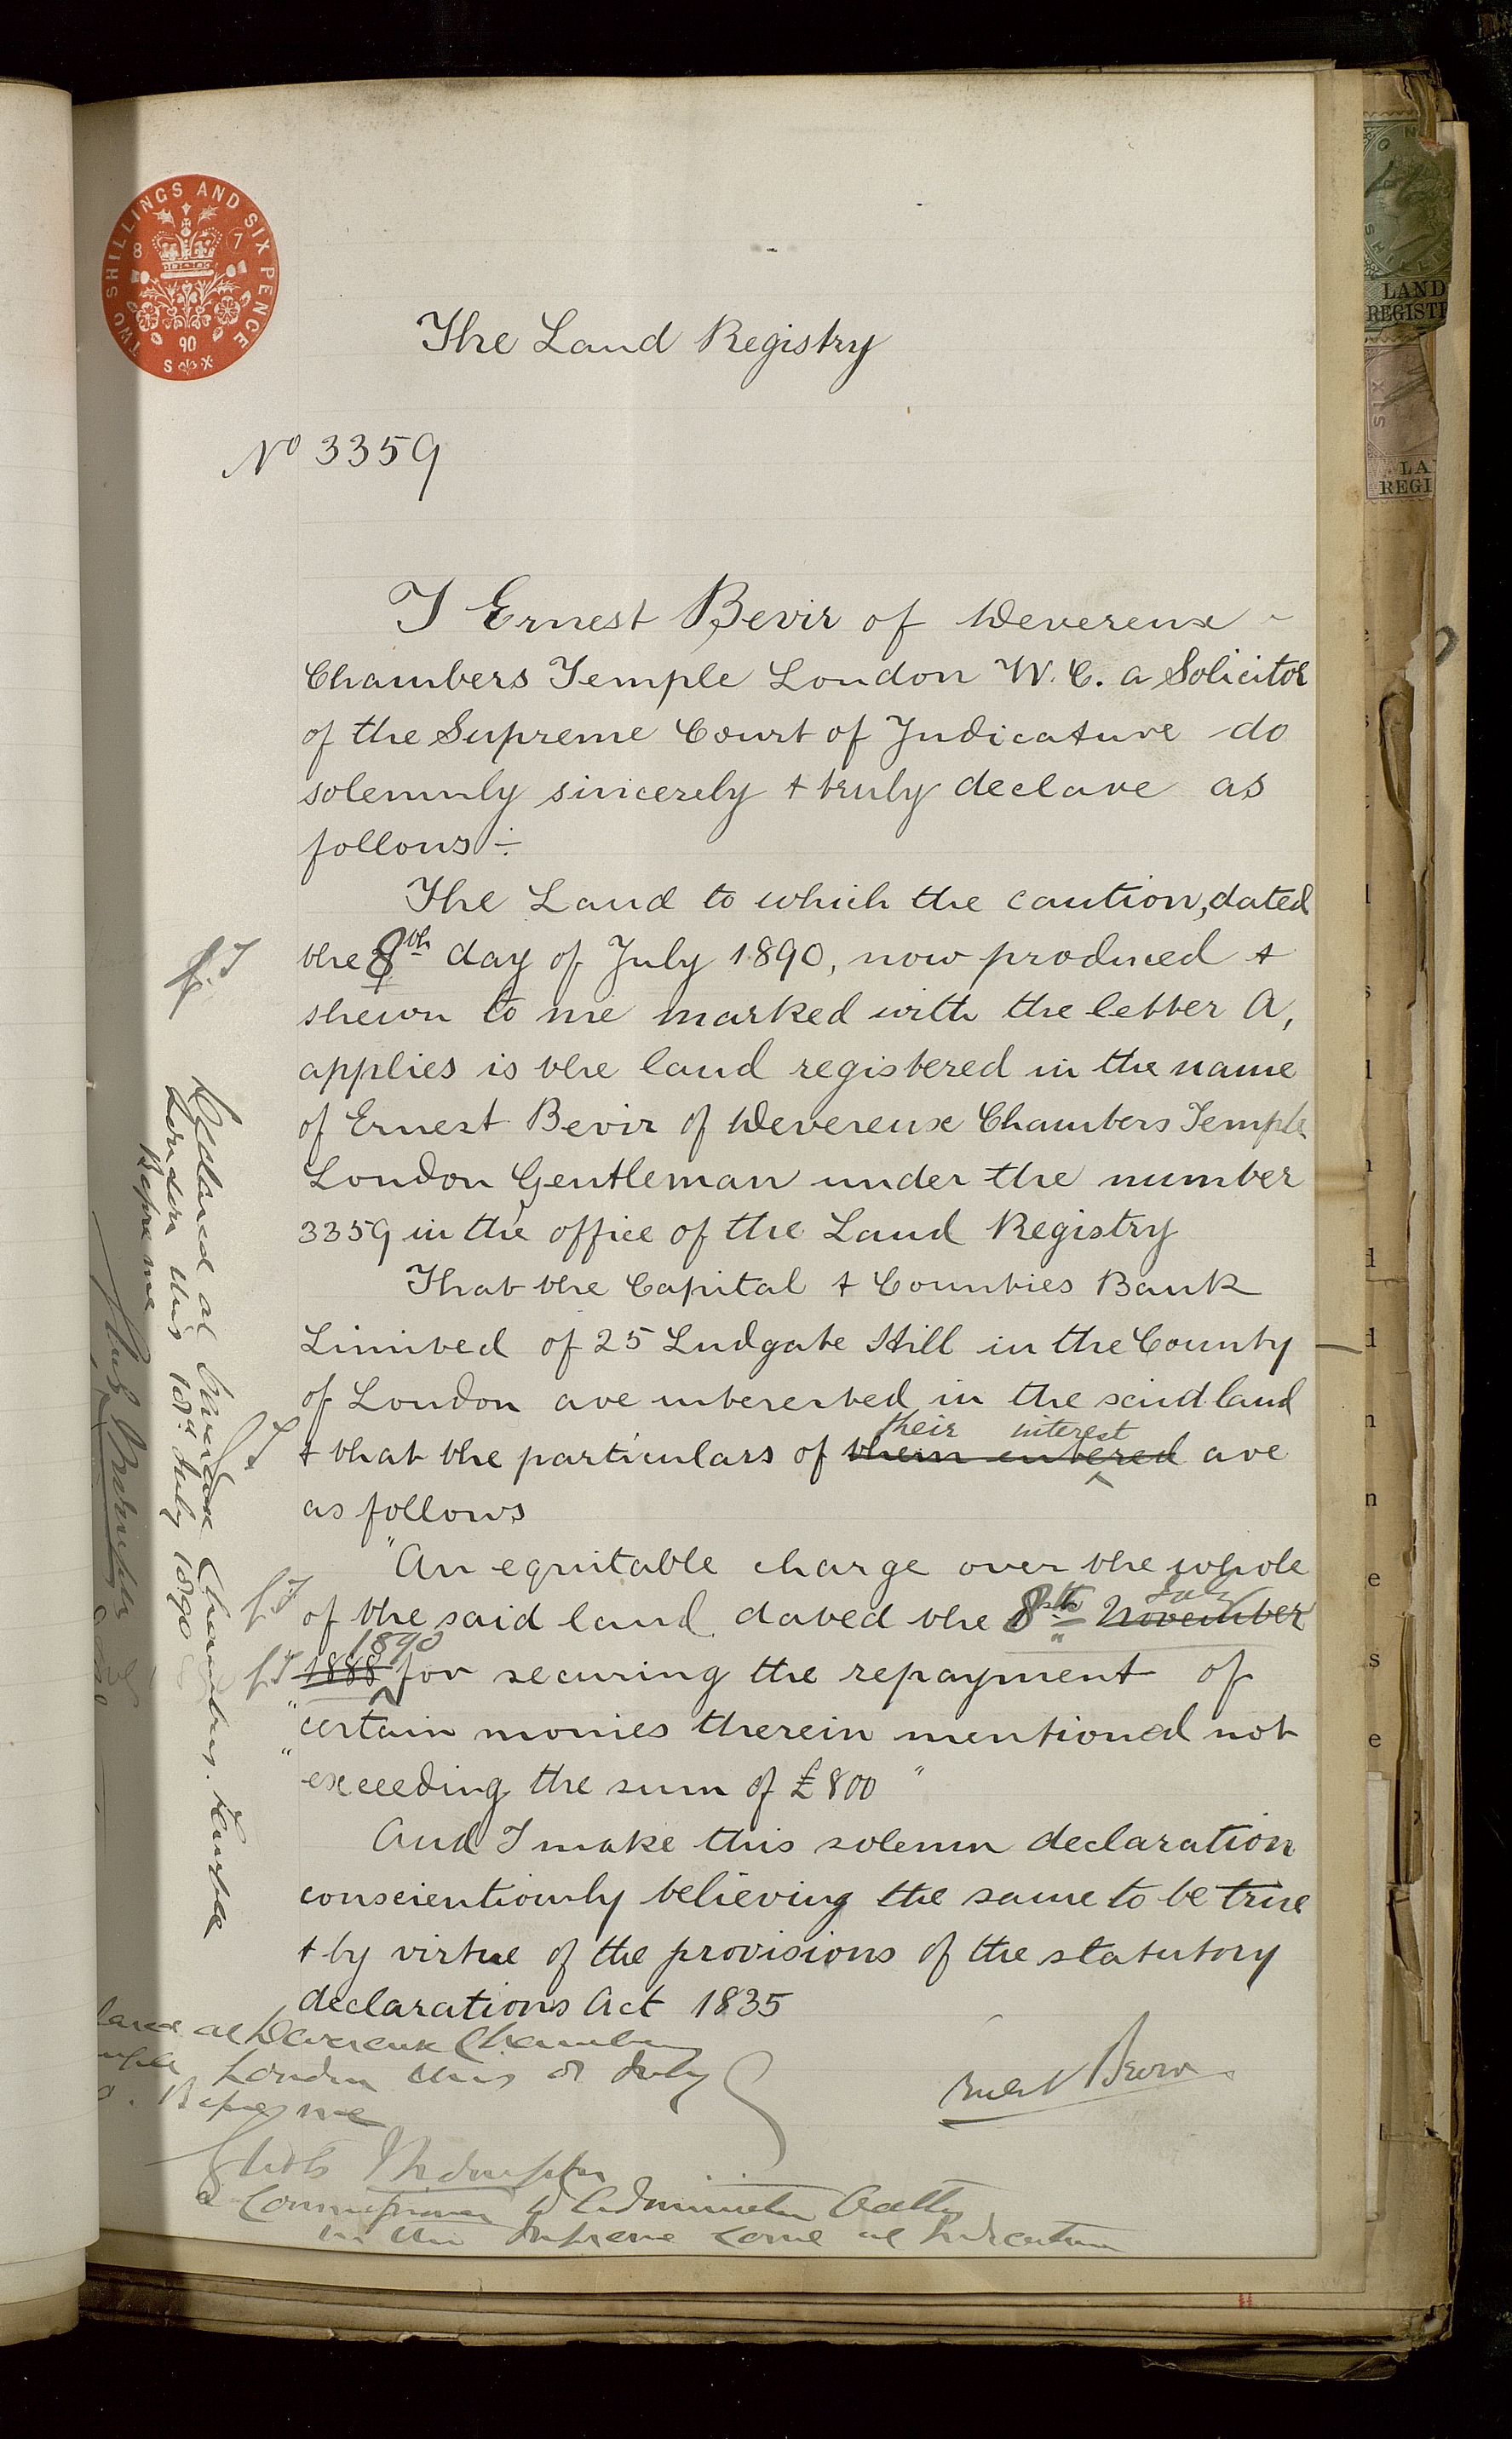 TWO SHILLINGS AND SIX PENCE
8 7
90
S X
The Land Registry
No 3359
I Ernest Bevir of Devereux
Chambers Temple London W.C. a Solicitor
of the Supreme Court of Judicature do
solemnly sincerely & truly declare as
follows:-
The Land to which the caution, dated
the 8th day of July 1890, now produced &
shewn to me marked with the letter A,
applies is the land registered in the name
of Ernest Bevir of Devereux Chambers Temple
London Gentleman under the number
3359 in the office of the Land Registry
That the Capital & Counties Bank
Limited of 25 Ludgate Hill in the County
of London are interested in the said land
their interest
& that the particulars of them entered are
as follows
"An equitable charge over the whole
July
of the said land dated the 8th November
1890
1888 for securing the repayment of
"certain monies therein mentioned not
"exceeding the sum of £800"
And I make this solemn declaration
conscientiously believing the same to be true
& by virtue of the provisions of the statutory
declarations Act 1835
at Devereux Chambers
London this 8 July
Before me
Ernest Bevir
a Commissioner to Administer Oaths
in the Supreme Court of Judicature
Declared at Devereux Chambers Temple
London this 18th July 1890
Before me
LAND
REGISTR
SIX
LA
REGI